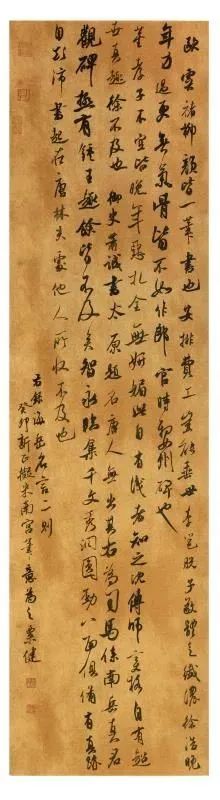 欧虞褚柳顔皆一筆書也安排費工豈能垂世李邕脱子敬體乏纖濃徐浩晚
年力過更無氣骨皆不如作郎官時婺州碑也
董孝子不空皆晚年惡札全無妍媚此自有識者知之沈傳師變格自有超
世真趣徐不及也御史蕭誠書太原題名唐人無出其右為司馬係南岳真君
觀碑極有鍾王趣餘皆不及矣智永臨集千文秀潤圓勁八面俱備有真跡
自顛沛書起在唐林夫處他人所收不及也
右録海岳名言一則
癸卯新正擬米南宮筆意為之栗健